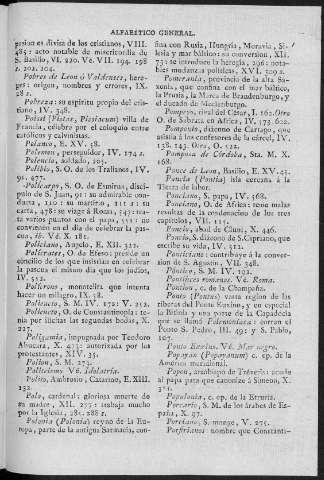 ALFABÉTICO GENERAL.
persion es divisa de los cristianos, VIII.
485: acto notable de misericordia de
S. Basilio, VI. 220. Ve. VII. 194. 198
y. 202. 204.
Pobres de Leon ó Valdenses, here-
ges: origen, nombres y errores, IX.
28 s.
Pobreza: su espíritu propio del cris-
tiano, IV. 348.
Poissi [Pistae, Pissiacum] villa de
Francia, célebre por el coloquio entre
católicos y calvinistas.
Polanco, E. XV. 58.
Polemon, perseguidor, IV. 174 s.
Polencio, soldado, 105.
Polibio, S. O. de los Tralianos, IV.
91. 477.
Policarpo, S. O. de Esmirna, discí-
pulo de S. Juan, 91: su admirable con-
ducta, 110: su martirio, 111 s: su
carta, 478: se viage á Roma, 347: tra-
ta varios puntos con el papa, 351: no
convienen en el dia de celebrar la pas-
cua, ib. Ve. X. 181.
Policiano, Angelo, E. XII. 312.
Polícrates, O. de Efeso: preside un
concilio de los que insistian en celebrar
la pascua el mismo dia que los judíos,
IV. 512.
Polícronas, monotelita que intenta
hacer un milagro, IX. 58.
Polieucto, S. M. IV. 172: V. 252.
Polieucto, O. de Constantinopla: te-
nia por ilícitas las segundas bodas, X.
227.
Poligamia, impugnada por Teodoro
Abucara, X. 413: autorizada por los
protestantes, XIV. 35.
Polion, S. M. 272.
Politeismo Ve. Idolatría.
Polo, Ambrosio, Catarino, E. XIII.
152.
Polo, cardenal: gloriosa muerte de
su madre, XII. 277: trabaja mucho
por la Iglesia, 281. 288 s.
Polonia (Polonia) reyno de la Eu-
ropa, parte de la antigua Sarmacia, con-
fina con Rusia, Hungria, Moravia, Si-
lesia y mar báltico: su conversion, XI.
73: se introduce la heregía, 296: nota-
bles mudanzas políticas, XVI. 209 s.
Pomerania, provincia de la alta Sa-
xonia, que confina con el mar báltico,
la Prusia, la Marca de Brandemburgo, y
el ducado de Meclemburgo.
Pompeyo, rival del César, I. 165: Otro
O. de Sabrata en Africa, IV. 173. 602.
Pomponio, diácono de Cartago, que
asistia á los confesores de la cárcel, IV.
138. 145. Otro, O. 122.
Pomposa de Córdoba, Sta. M. X.
168.
Ponce de Leon, Basilio, E. XV. 41.
Poncia (Pontia) isla cercana á la
Tierra de labor.
Ponciano, S. papa, IV. 468.
Ponciano, O. de Africa: teme malas
resultas de la condenacion de los tres
capítulos, VII. 115.
Poncio, abad de Cluni, X. 446.
Poncio, S. diácono de S. Cipriano, que
escribe su vida, IV. 512.
Ponticiano: contribuye á la conver-
sion de S. Agustin, VII. 348.
Póntico, S. M. IV. 103.
Pontífices romanos. Ve. Roma.
Pontion, c. de la Champaña.
Ponto (Pontus) vasta region de las
riberas del Ponto Euxino, y en especial
la Bitinia y una parte de la Capadocia
que se llamó Polemoniaca: entran el
Ponto S. Pedro, III. 49: y S. Pablo,
107.
Ponto Euxino. Ve. Mar negro.
Popayan (Popayanum) c. ep. de la
América meridional.
Popon, arzobispo de Tréveris: acude
al papa para que canonice á Simeon, X.
351.
Populonia, c. ep. de la Etruria.
Porcario, S. M. de los árabes de Es-
paña, X. 97.
Porciano, S. monge, V. 275.
Porfirianos: nombre que Constanti-